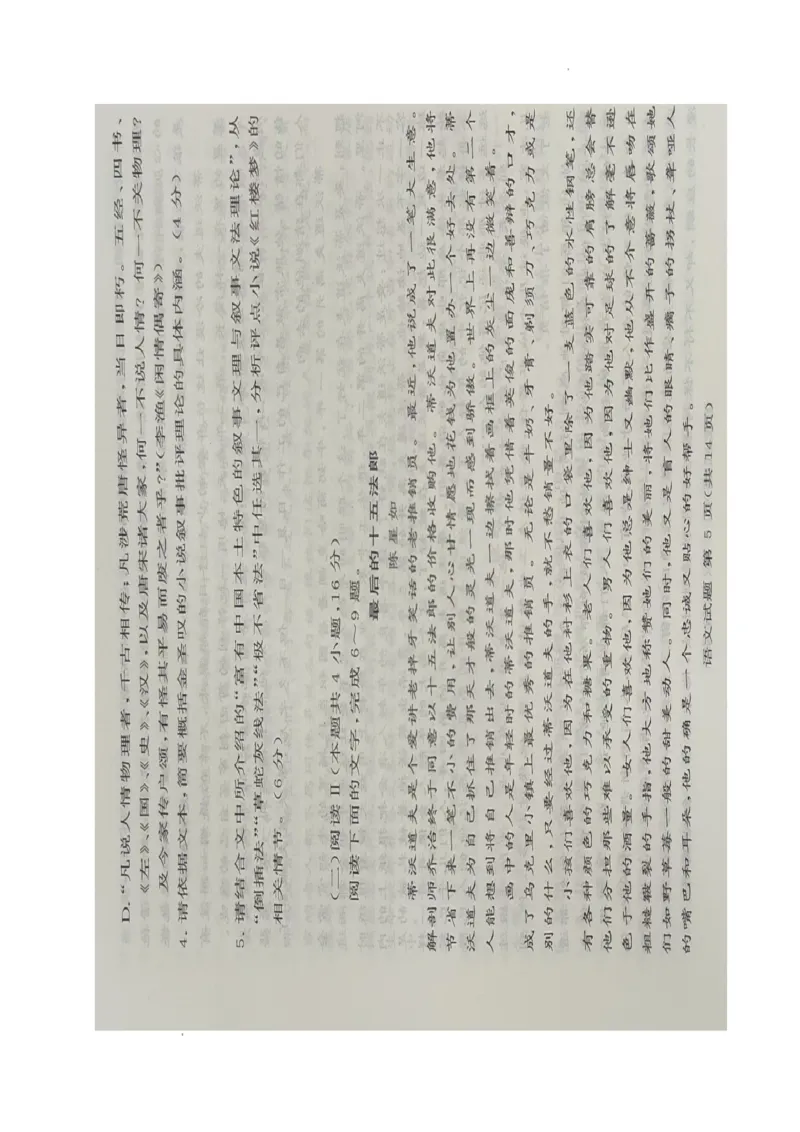 D.“凡说人情物理者，千古相传；凡涉荒唐怪异者，当日即朽。五经、四书、
《左》、《国》、《史》、《汉》，以及唐宋诸大家，何一不说人情？何一不关物理？
及今家传户颂，有怪其平易而废之者乎？”(李渔《闲情偶寄》)
4. 请依据文本，简要概括金圣叹的小说叙事批评理论的具体内涵。（4 分）
5. 请结合文中所介绍的“富有中国本土特色的叙事文理与叙事文法理论”，从
“倒插法”“草蛇灰线法”“极不省法”中任选其一，分析评点小说《红楼梦》的
相关情节。（6 分）
(二)阅读 II（本题共 4 小题，16 分）
阅读下面的文字，完成 6～9 题。
最后的十五法郎
陈星如
蒂沃道夫是个爱讲老掉牙笑话的老推销员。最近，他说成了一笔大生意。
解剖师乔治终于同意以十五法郎的价格收购他。蒂沃道夫对此很满意，他将
节省下来一笔不小的费用，让别人心甘情愿地花钱为他置办一个好去处。蒂
沃道夫为自己抓住了那天才般的灵光一现而感到骄傲。世界上再没有第二个
人能想到将自己推销出去，蒂沃道夫一边擦拭着画框上的灰尘一边微笑着。
画中的人是年轻时的蒂沃道夫，那时他凭借着英俊的面庞和善辩的口才，
成了乌克里小镇上最优秀的推销员。无论是牛奶、牙膏、剃须刀、巧克力或是
别的什么，只要经过蒂沃道夫的手，就不愁销量不好。
小孩们喜欢他，因为在他衬衫上衣的口袋里除了一支蓝色的水性钢笔，还
有各种颜色的巧克力和糖果。老人们喜欢他，因为他踏实可靠的肩膀总会替
他们分担那些难以承受的重物。男人们喜欢他，因为他对足球的了解毫不逊
色于他的酒量。女人们喜欢他，因为他总是绅士又幽默，他从不介意将唇吻在
粗糙皲裂的手指，他大方地称赞她们的美丽，将她们比作盛开的蔷薇，歌颂她
们如野草莓一般的甜美动人。同时，他又是盲人的眼睛、瘸子的拐杖、聋哑人
的嘴巴和耳朵，他的确是一个忠诚又贴心的好帮手。
语文试题 第 5 页(共 14 页)